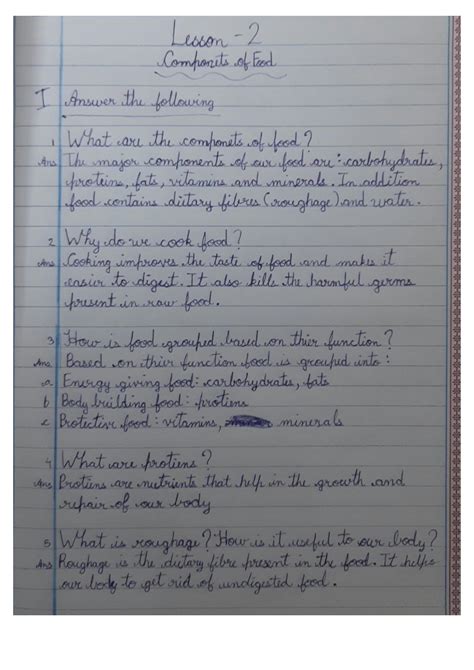 Lesson - 2
Componits of Food
I Answer the following
1. What are the componets of food?
Ans The major components of our food are : carbohydrates,
proteins, fats, vitamins and minerals. In addition
food contains dietary fibres (roughage) and water.
2. Why do we cook food?
Ans Cooking improves the taste of food and makes it
easier to digest. It also kills the harmful germs
present in raw food.
3 How is food grouped based on thier function?
Ans Based on thier function food is grouped into :
a. Energy giving food : carbohydrates, fats
b Body building food : protiens
c Protective food : vitamins, minerals
4 What are protiens?
Ans Protiens are nutrients that help in the growth and
repair of our body
5 What is roughage? How is it useful to our body?
Ans Roughage is the dietary fibre present in the food. It helps
our body to get rid of undigested food.